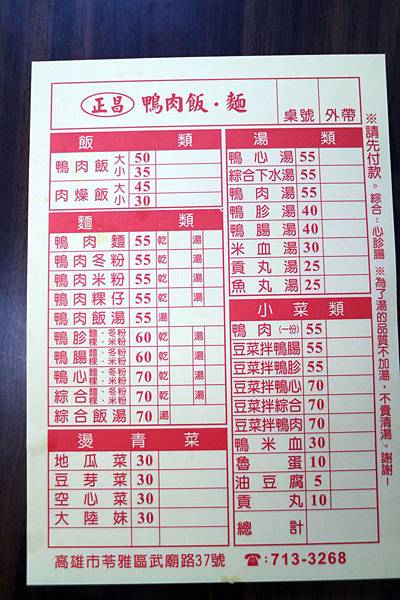 正昌 鴨肉飯·麵
桌號 外帶
飯類
鴨肉飯 大 50
小 35
肉燥飯 大 45
小 30
麵類
鴨肉麵 55 乾 湯
鴨肉冬粉 55 乾 湯
鴨肉米粉 55 乾 湯
鴨肉粿仔 55 乾 湯
鴨肉飯湯 55 湯
鴨胗 麵、冬粉 粿、米粉 60 乾 湯
鴨腸 麵、冬粉 粿、米粉 60 乾 湯
鴨心 麵、冬粉 粿、米粉 70 乾 湯
綜合 麵、冬粉 粿、米粉 70 乾 湯
綜合飯湯 70 湯
燙青菜
地瓜菜 30
豆芽菜 30
空心菜 30
大陸妹 30
湯類
鴨心湯 55
綜合下水湯 55
鴨肉湯 55
鴨胗湯 40
鴨腸湯 40
米血湯 30
貢丸湯 25
魚丸湯 25
小菜類
鴨肉(一份) 55
豆菜拌鴨腸 55
豆菜拌鴨胗 55
豆菜拌鴨心 70
豆菜拌綜合 70
豆菜拌鴨肉 70
鴨米血 30
魯蛋 10
油豆腐 5
貢丸 10
總計
※請先付款。綜合:心胗腸 ※為了湯的品質不加湯,不賣清湯。謝謝!
高雄市苓雅區武廟路37號 ☎:713-3268